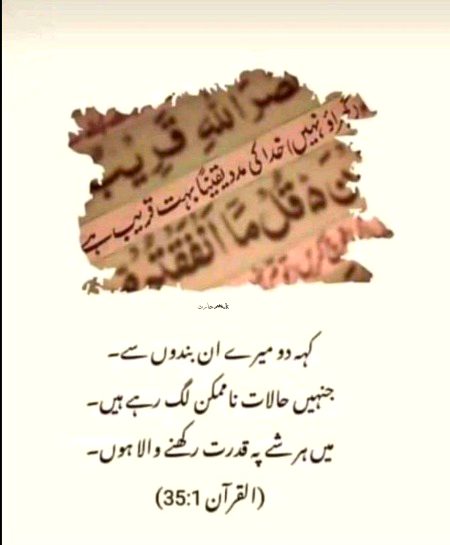 صْرَ اللهِ قَرِيْبٌ
گھبراؤ نہیں) خدا کی مدد یقیناً بہت قریب ہے
قُلْ مَا اَنْفَقْتُمْ
کہہ دو میرے ان بندوں سے۔
جنہیں حالات ناممکن لگ رہے ہیں۔
میں ہر شے پہ قدرت رکھنے والا ہوں۔
(القرآن 35:1)